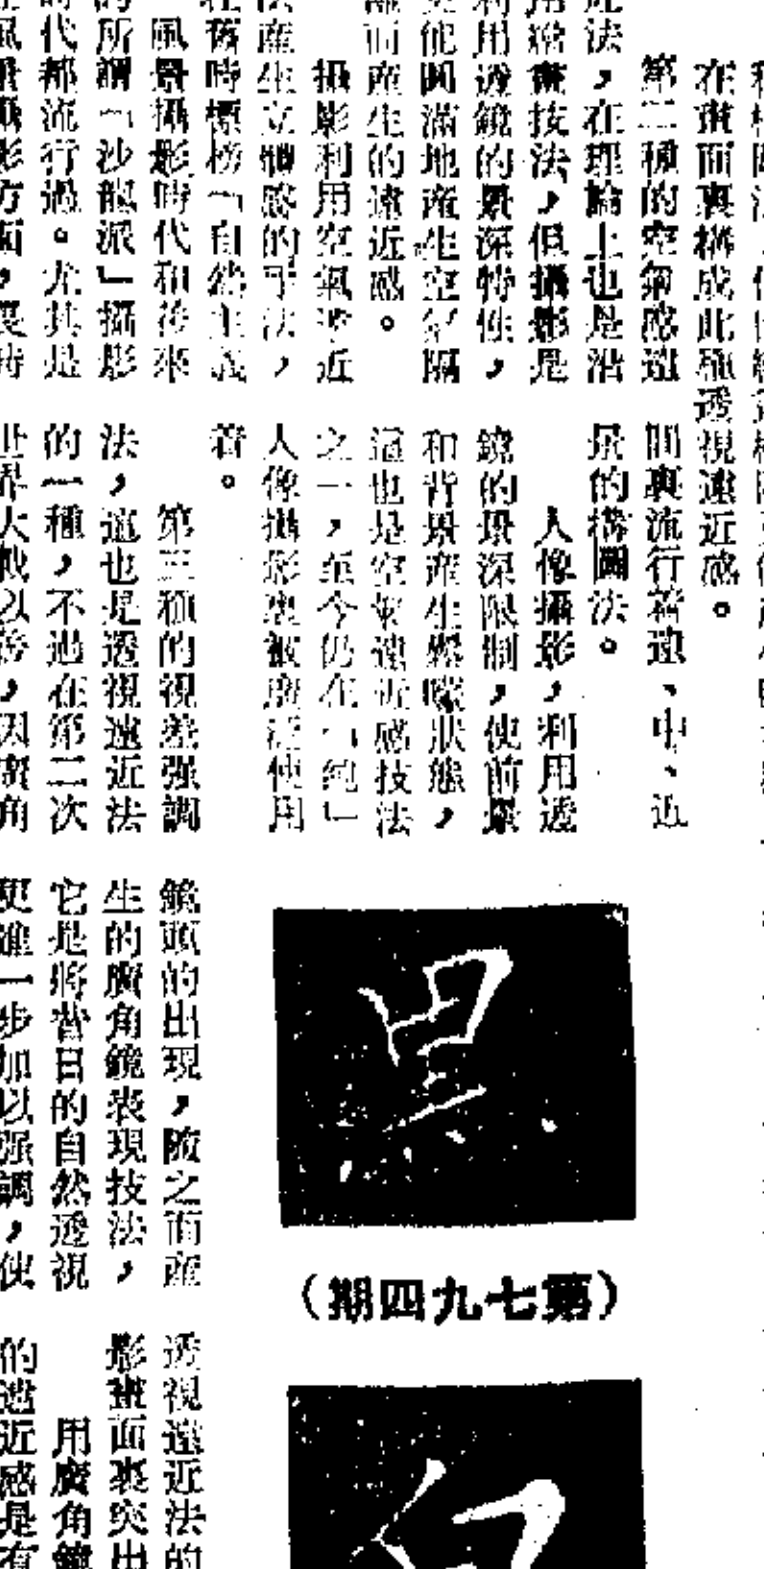 在畫面裏構成此種透視遠近感。
第二種的空氣感遠
近法，在理論上也是沿
用繪畫技法，但攝影是
利用透鏡的景深特性，
能圓滿地產生空氣隔
而產生的遠近感。
攝影利用空氣遠近
產生立體感的手法，
舊時標榜「自然主義
風景攝影時代和後來
的所謂「沙龍派」攝影
時代都流行過。尤其是
風景攝影方面，長時
間裏流行着遠、中、近
景的構圖法。
人像攝影，利用透
鏡的景深限制，使前景
和背景產生朦朧狀態，
這也是空氣遠近感技法
之一，至今仍在「純」
人像攝影裏被廣泛使用
着。
第三種的視差强調
法，這也是透視遠近法
的一種，不過在第二次
世界大戰以後，因廣角
鏡頭的出現，隨之而產
生的廣角鏡表現技法，
它是將昔日的自然透視
更進一步加以强調，使
透視遠近法的
影畫面裏突出
用廣角鏡
的遠近感是有
黑
（第七九四期）
白